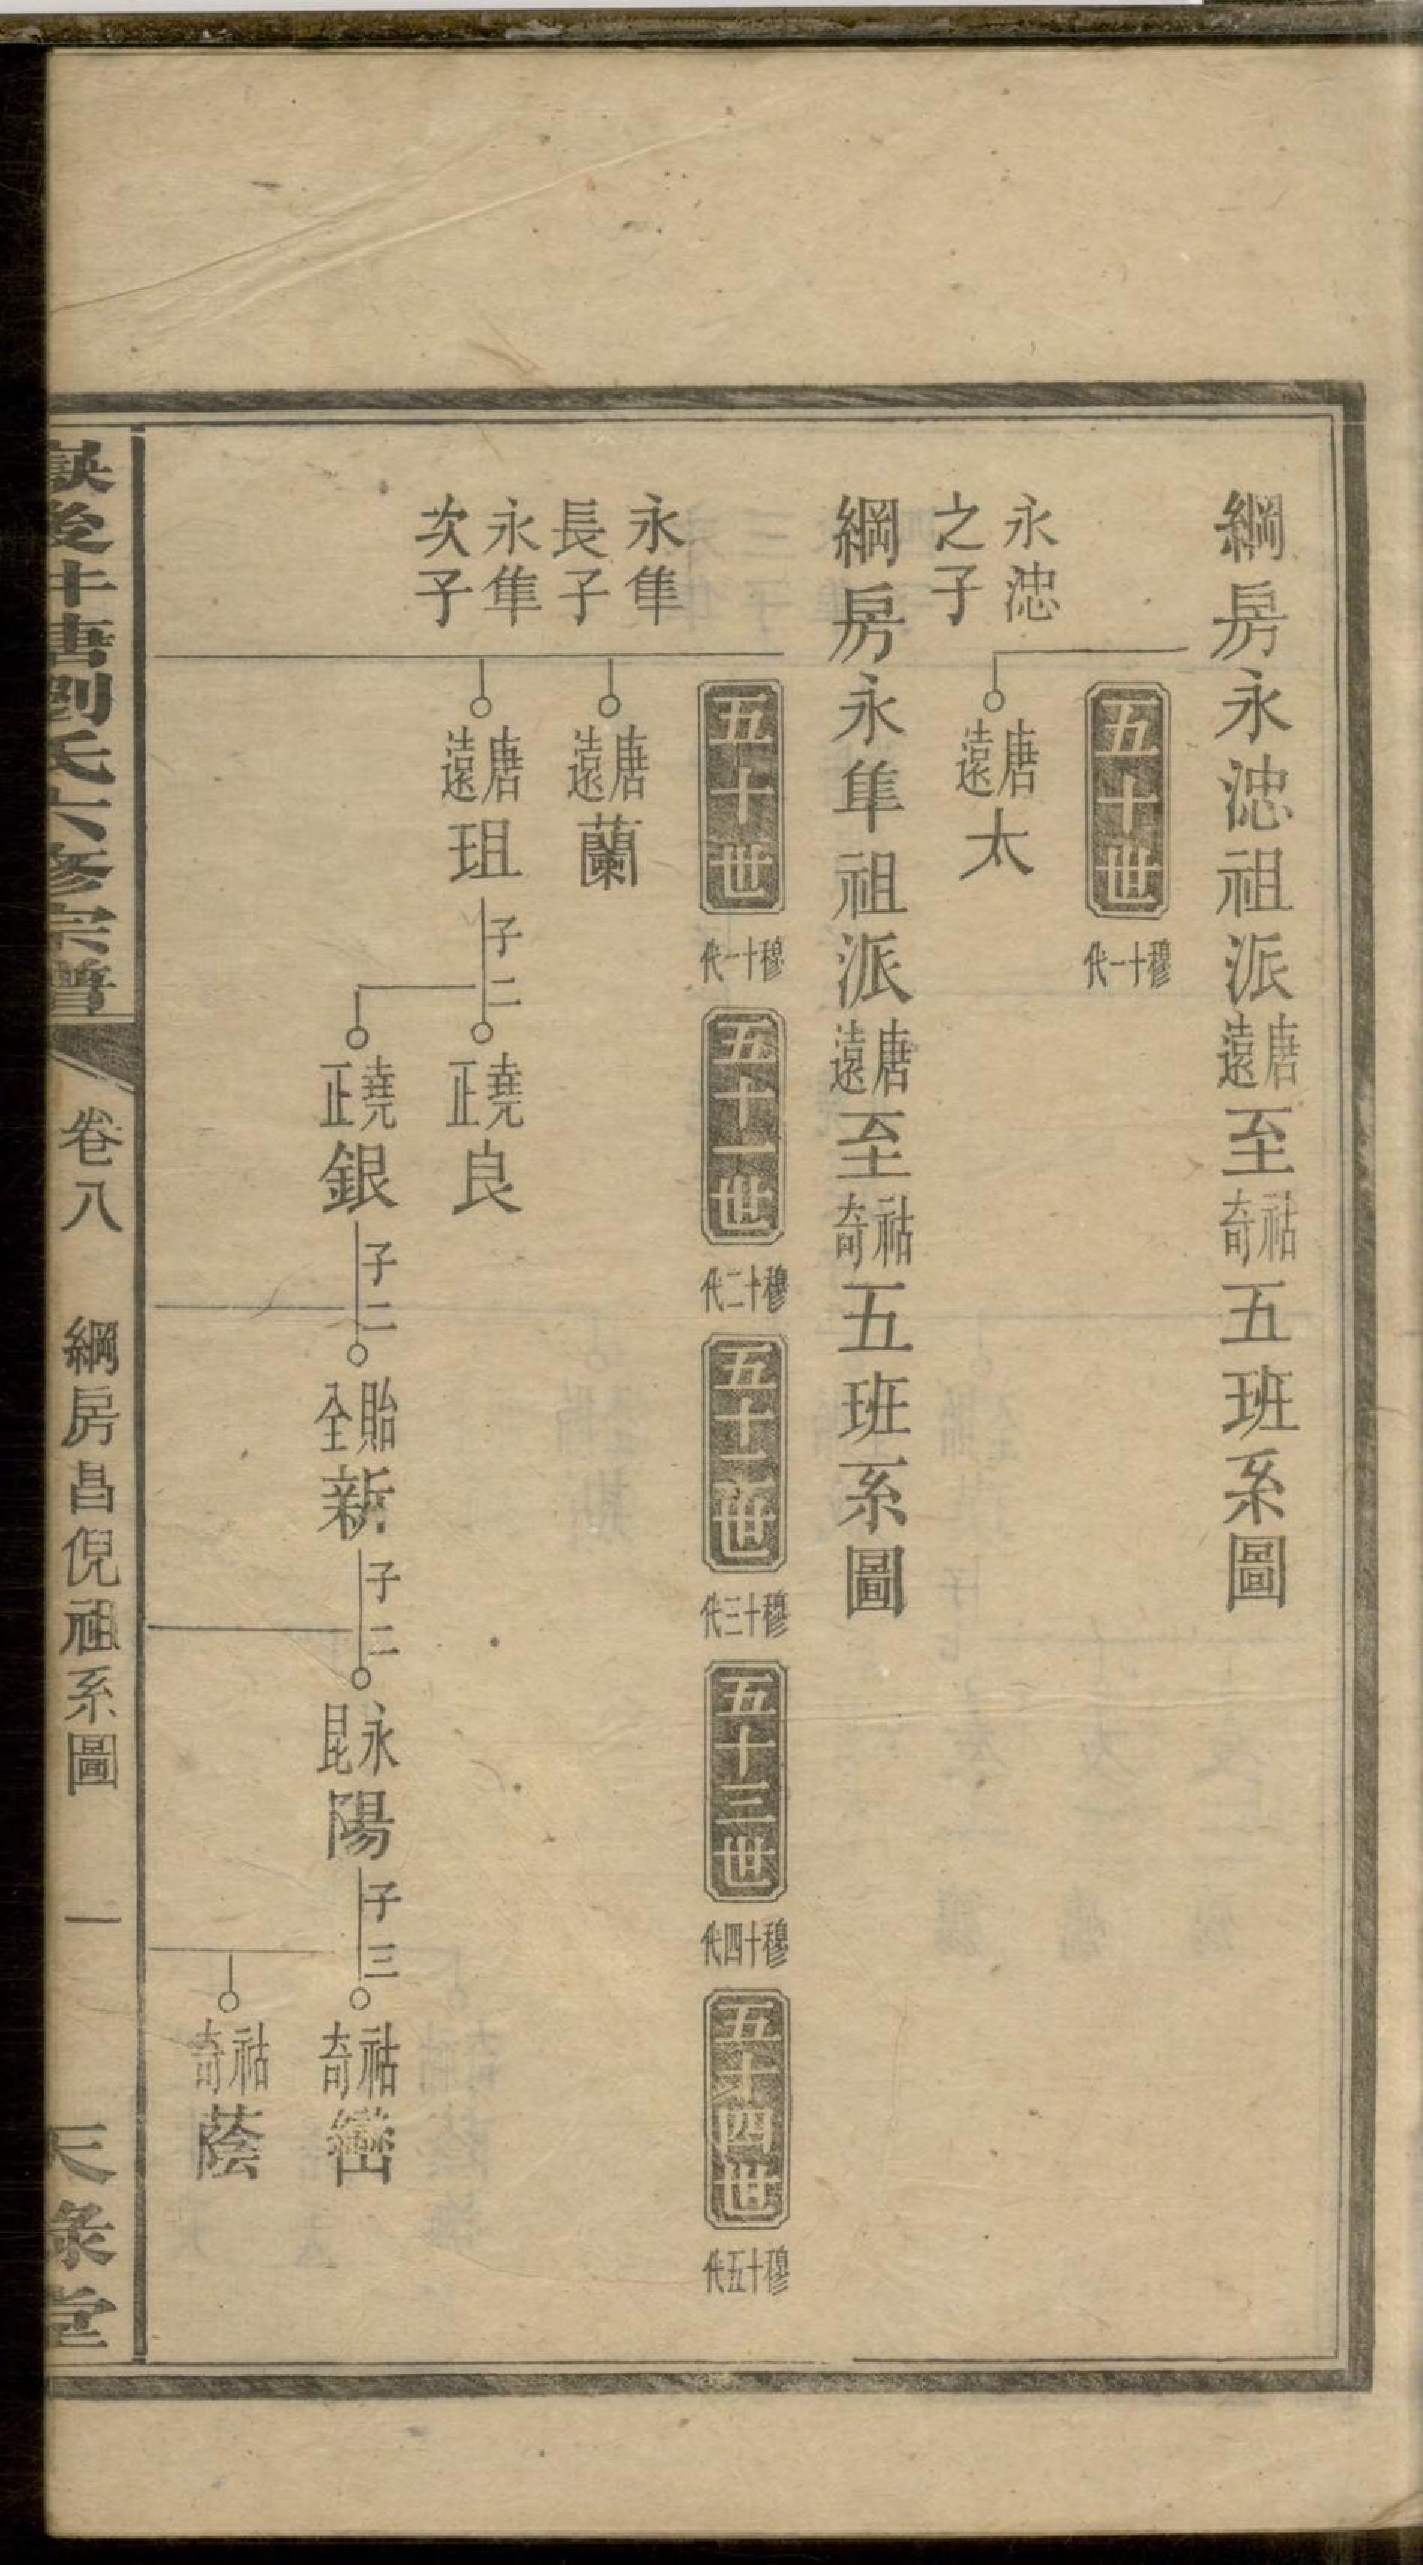 綱房永淴祖派唐遠至祜奇五班系圖
五十世
穆十一代
永淴
之子
唐遠太
綱房永隼祖派唐遠至祜奇五班系圖
五十世
穆十一代
五十一世
穆十二代
五十二世
穆十三代
五十三世
穆十四代
五十四世
穆十五代
永隼
長子
唐遠蘭
永隼
次子
唐遠珇
子二
堯正良
堯正銀
子二
貽全新
子二
永昆陽
子三
祜奇巒
祜奇蔭
後
唐劉氏六修宗譜
卷八
綱房昌倪祖系圖
一
天祿堂